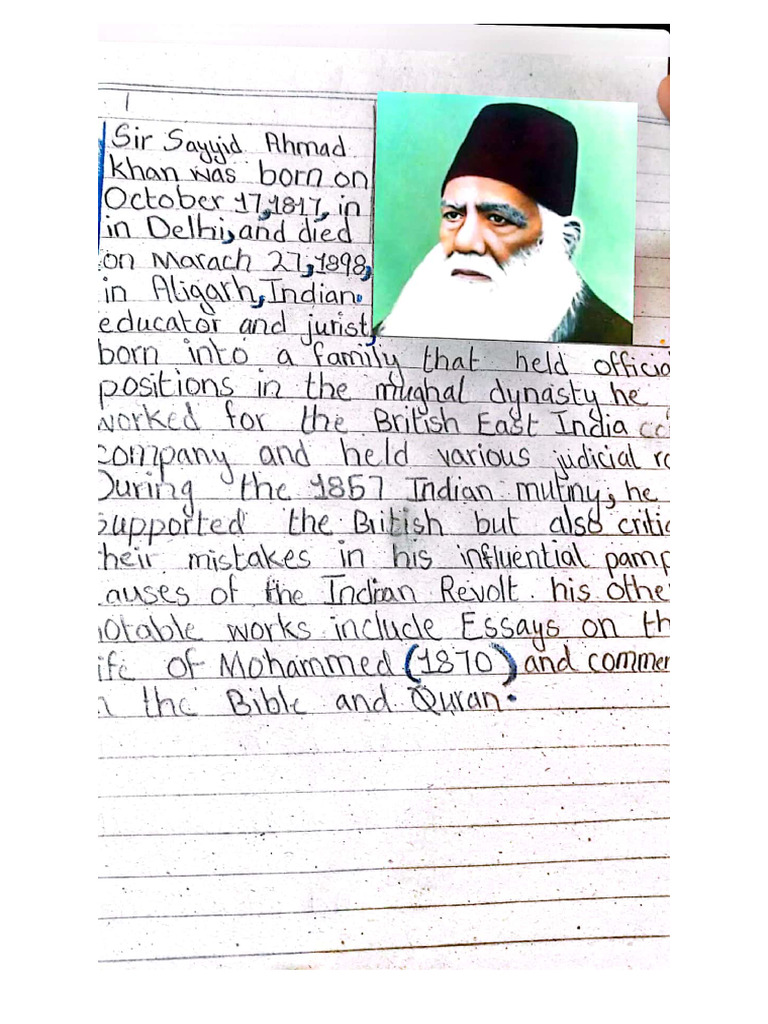 1
Sir Sayyid Ahmad
khan was born on
October 17,1817, in
in Delhi, and died
on Marach 27,1898,
in Aligarh, Indian.
educator and jurist,
born into a family that held officia
positions in the mughal dynasty he
worked for the British East India co
company and held various judicial ro
During the 1857 Indian mutiny, he
supported the British but also critic
their mistakes in his influential pamp
causes of the Indian Revolt. his othe
notable works include Essays on th
ife of Mohammed (1870) and commen
n the Bible and Quran.